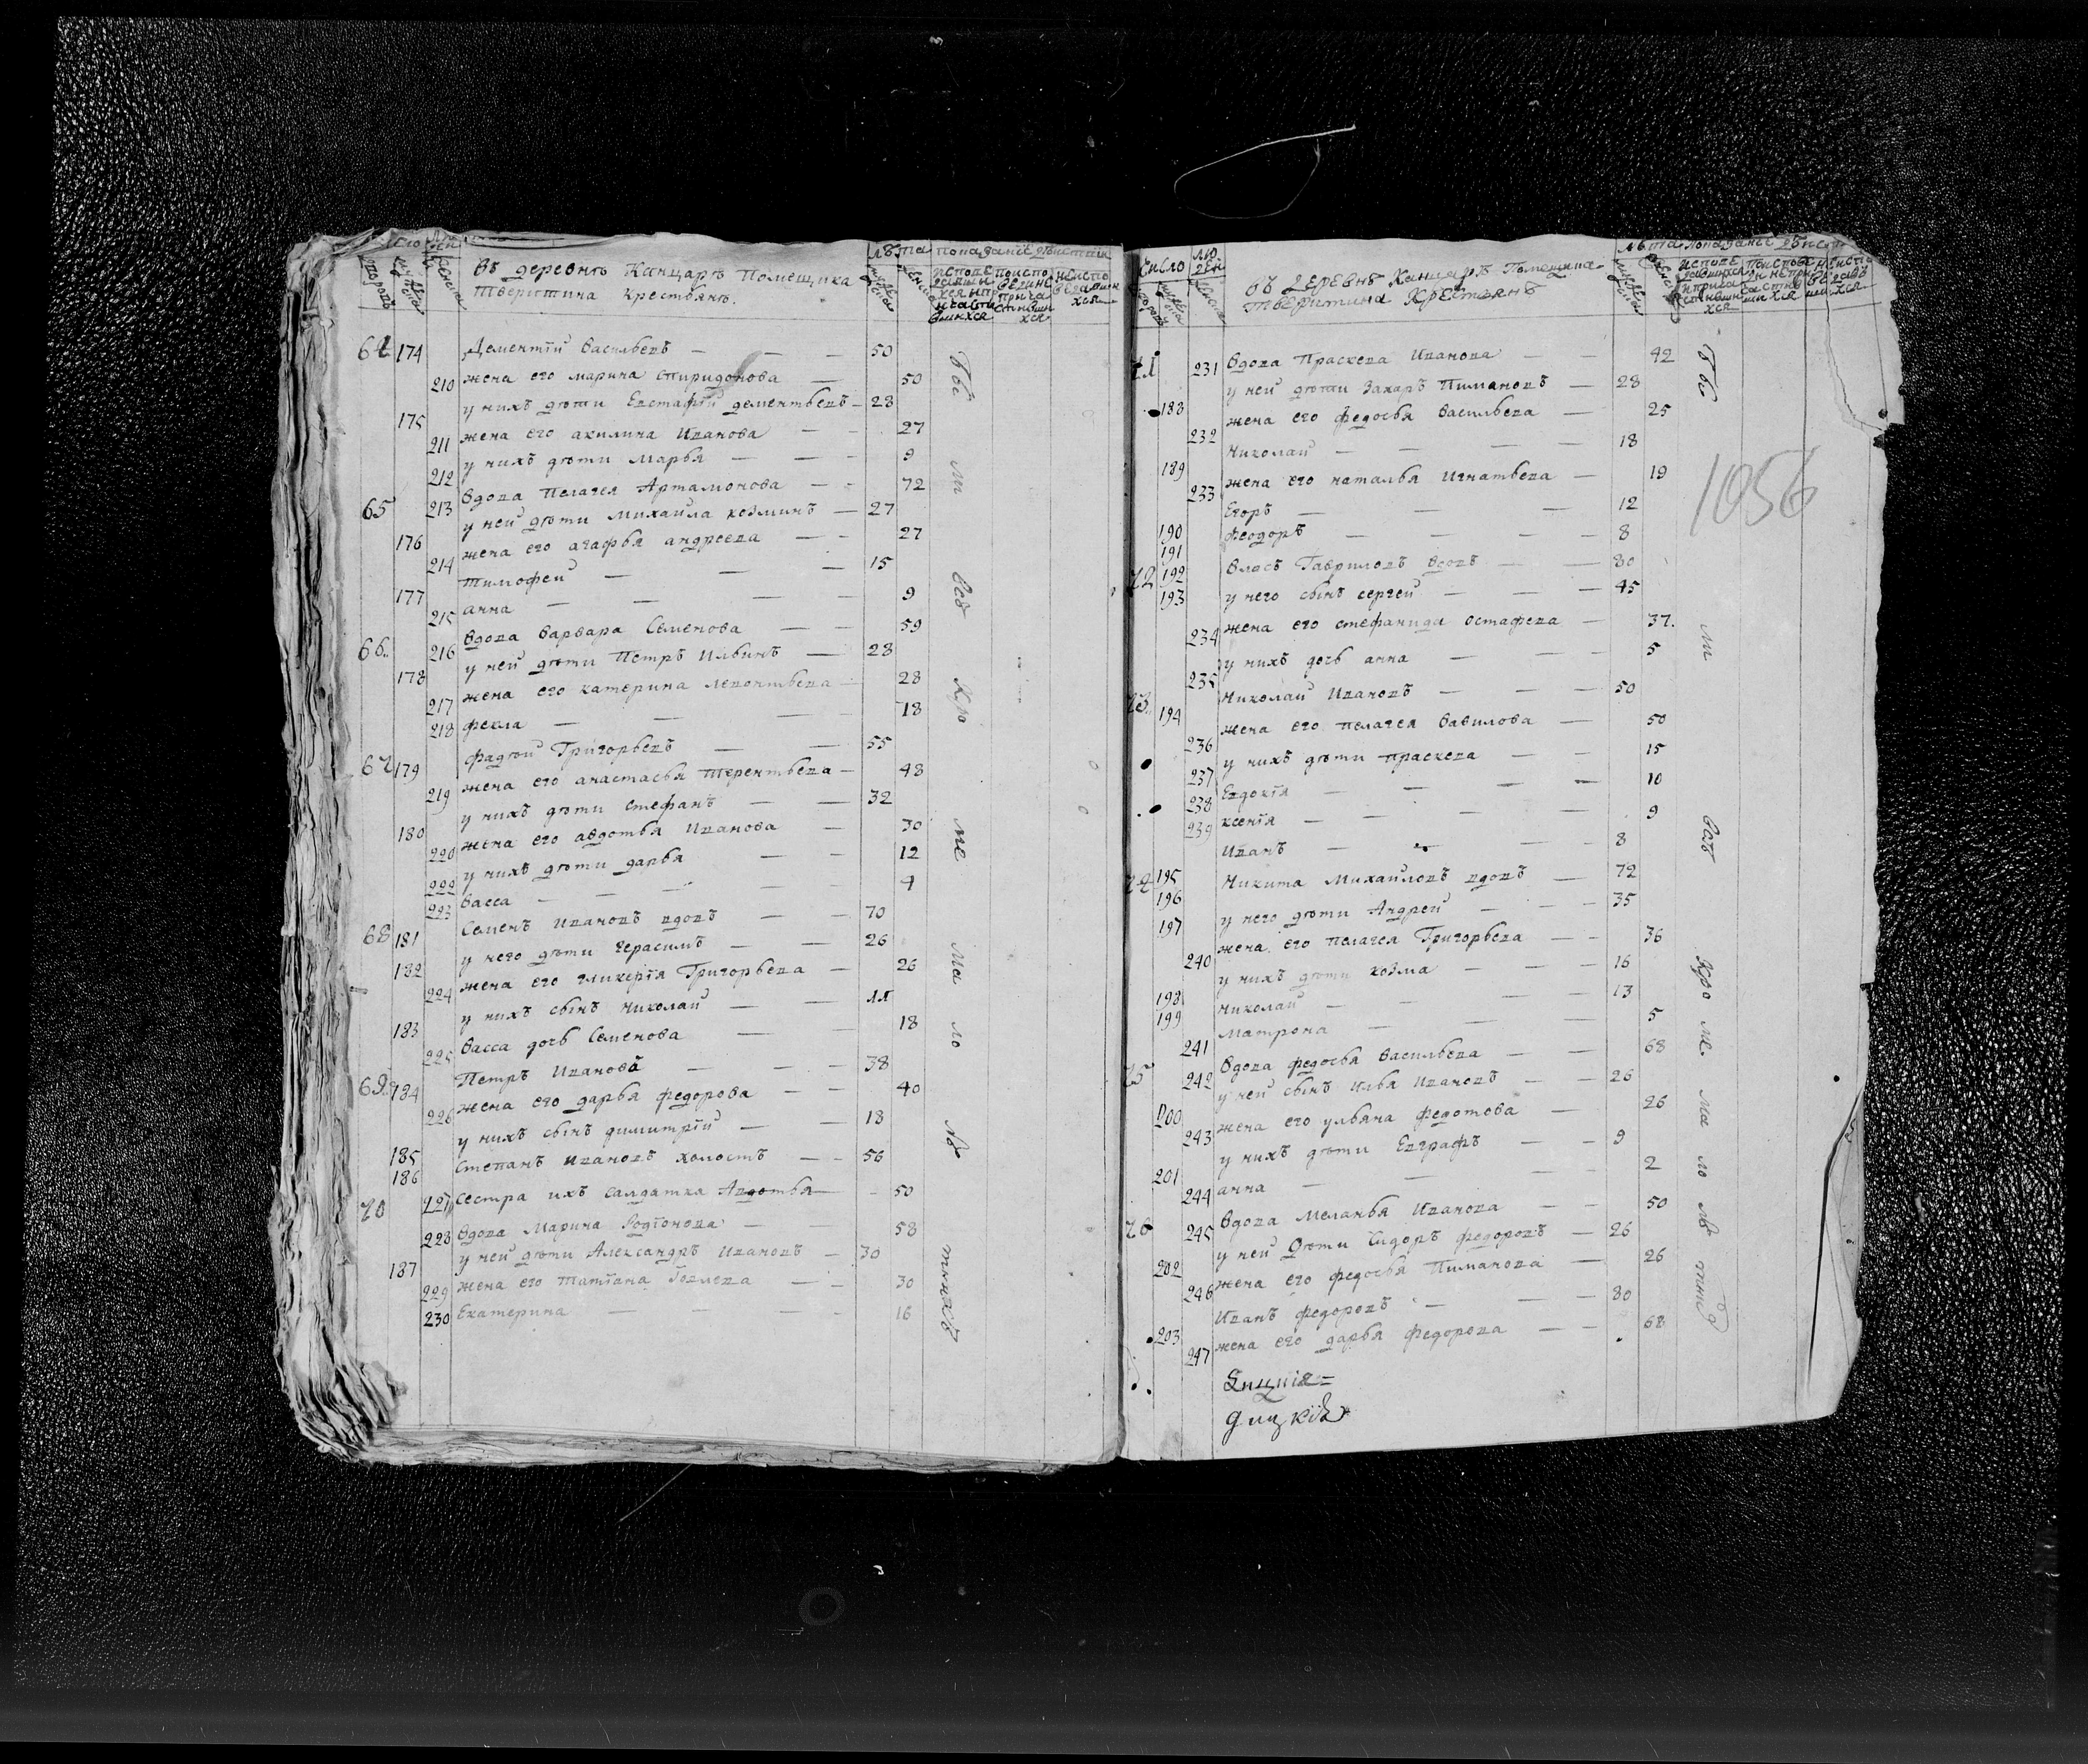 въ деревнѣ Канцарѣ Помещика
тверитина крестьянъ.
лѣта показанїе дѣйствїи
64 174 Дементїй васильевъ — 50
210 жена его марина спиридонова — 50
175 у нихъ дѣти Евстафїй дементьевъ — 28
211 жена его акилина Иванова — 27
212 у нихъ дѣти марья — 9
65 213 вдова пелагея Артамонова — 72
176 у ней дѣти михайла козминъ — 27
214 жена его агафья андреева — 27
177 тимофей — 15
215 анна — 9
66 216 вдова варвара Семенова — 59
178 у ней дѣти Петръ ильинъ — 28
217 жена его катерина леонтьева 28
218 фекла — 18
67 179 фадѣй Григорьевъ — 55
219 жена его анастасья терентьева — 48
180 у нихъ дѣти стефанъ — 32
220 жена его авдотья Иванова — 30
222 у нихъ дѣти дарья — 12
223 васса — 7
68 181 Семенъ ивановъ вдовъ — 70
182 у него дѣти герасимъ — 26
224 жена его гликерїя Григорьева — 26
183 у нихъ сынъ николай — 11
225 васса дочь Семенова — 18
69 184 Петръ Иванова — 38
226 жена его дарья федорова — 40
185 у нихъ сынъ димитрїй — 18
186 степанъ ивановъ холостъ — 56
70 227 Сестра ихъ салдатка Авдотья — 50
228 вдова Марина Родїонова — 58
187 у ней дѣти Александръ ивановъ — 30
229 жена его татїана 30
230 Екатерина — 16
Число лю дей
въ деревнѣ Канцарѣ Помещика
тверитина Крестьянъ
71 231 вдова Праскева Иванова — 42
188 у ней дѣти Захаръ Пимановъ — 28
232 жена его федосья васильева — 25
189 Николай — 18
233 жена его наталья игнатьева — 19
190 Егоръ — 12
191 феодоръ — 8
72 192 власъ Гавриловъ вдовъ — 80
193 у него сынъ сергей — 45
234 жена его стефанида остафева — 37.
235 у нихъ дочь анна — 5
73 194 Николай Ивановъ — 50
236 жена его пелагея вавилова — 50
237 у нихъ дѣти праскева — 15
238 Евдокїя — 10
239 ксенїя — 9
195 Иванъ — 8
74 196 Никита михайловъ вдовъ — 72
197 у него дѣти Андрей — 35
240 жена его пелагея Григорьева — 36
198 у нихъ дѣти козма — 16
199 николай — 13
241 матрона — 5
75 242 вдова федосья васильева — 68
200 у ней сынъ илья ивановъ — 26
243 жена его ульяна федотова — 26
201 у нихъ дѣти Евграфъ — 9
244 анна — 2
76 245 вдова меланья иванова — 50
202 у ней дѣти Сидоръ федоровъ — 26
246 жена его федосья Пиманова — 26
203 Иванъ федоровъ — 80
247 жена его дарья федорова — 68
1056